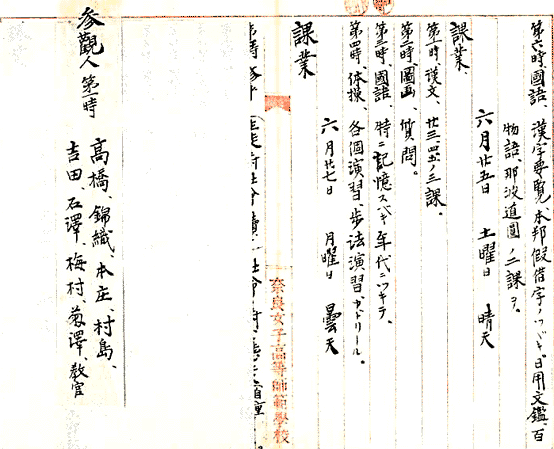 第六時、國語、漢字要覧、本邦假借字ノツヅキ、日用文鑑、百
物語、那波道圓ノ二課ヲ。
六月廿五日　土曜日　晴天
課業、
第一時、漢文、廿三、四、五ノ三課。
第二時、圖画、質問。
第三時、國語、特ニ記憶スベキ年代ニツキテ、
第四時、体操、各個演習、歩法演習、カドリール。
六月廿七日　月曜日　曇天
課業
奈良女子高等師範學校
参觀人　第一時
高橋、錦織、本庄、村島、
吉田、石澤、梅村、菊澤、教官